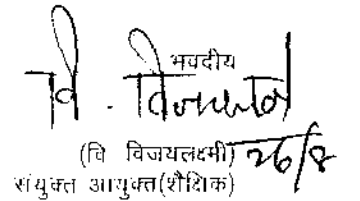 भवदीय
वि. विजयलक्ष्मी
(वि विजयलक्ष्मी) 26/8
संयुक्त आयुक्त(शैक्षिक)